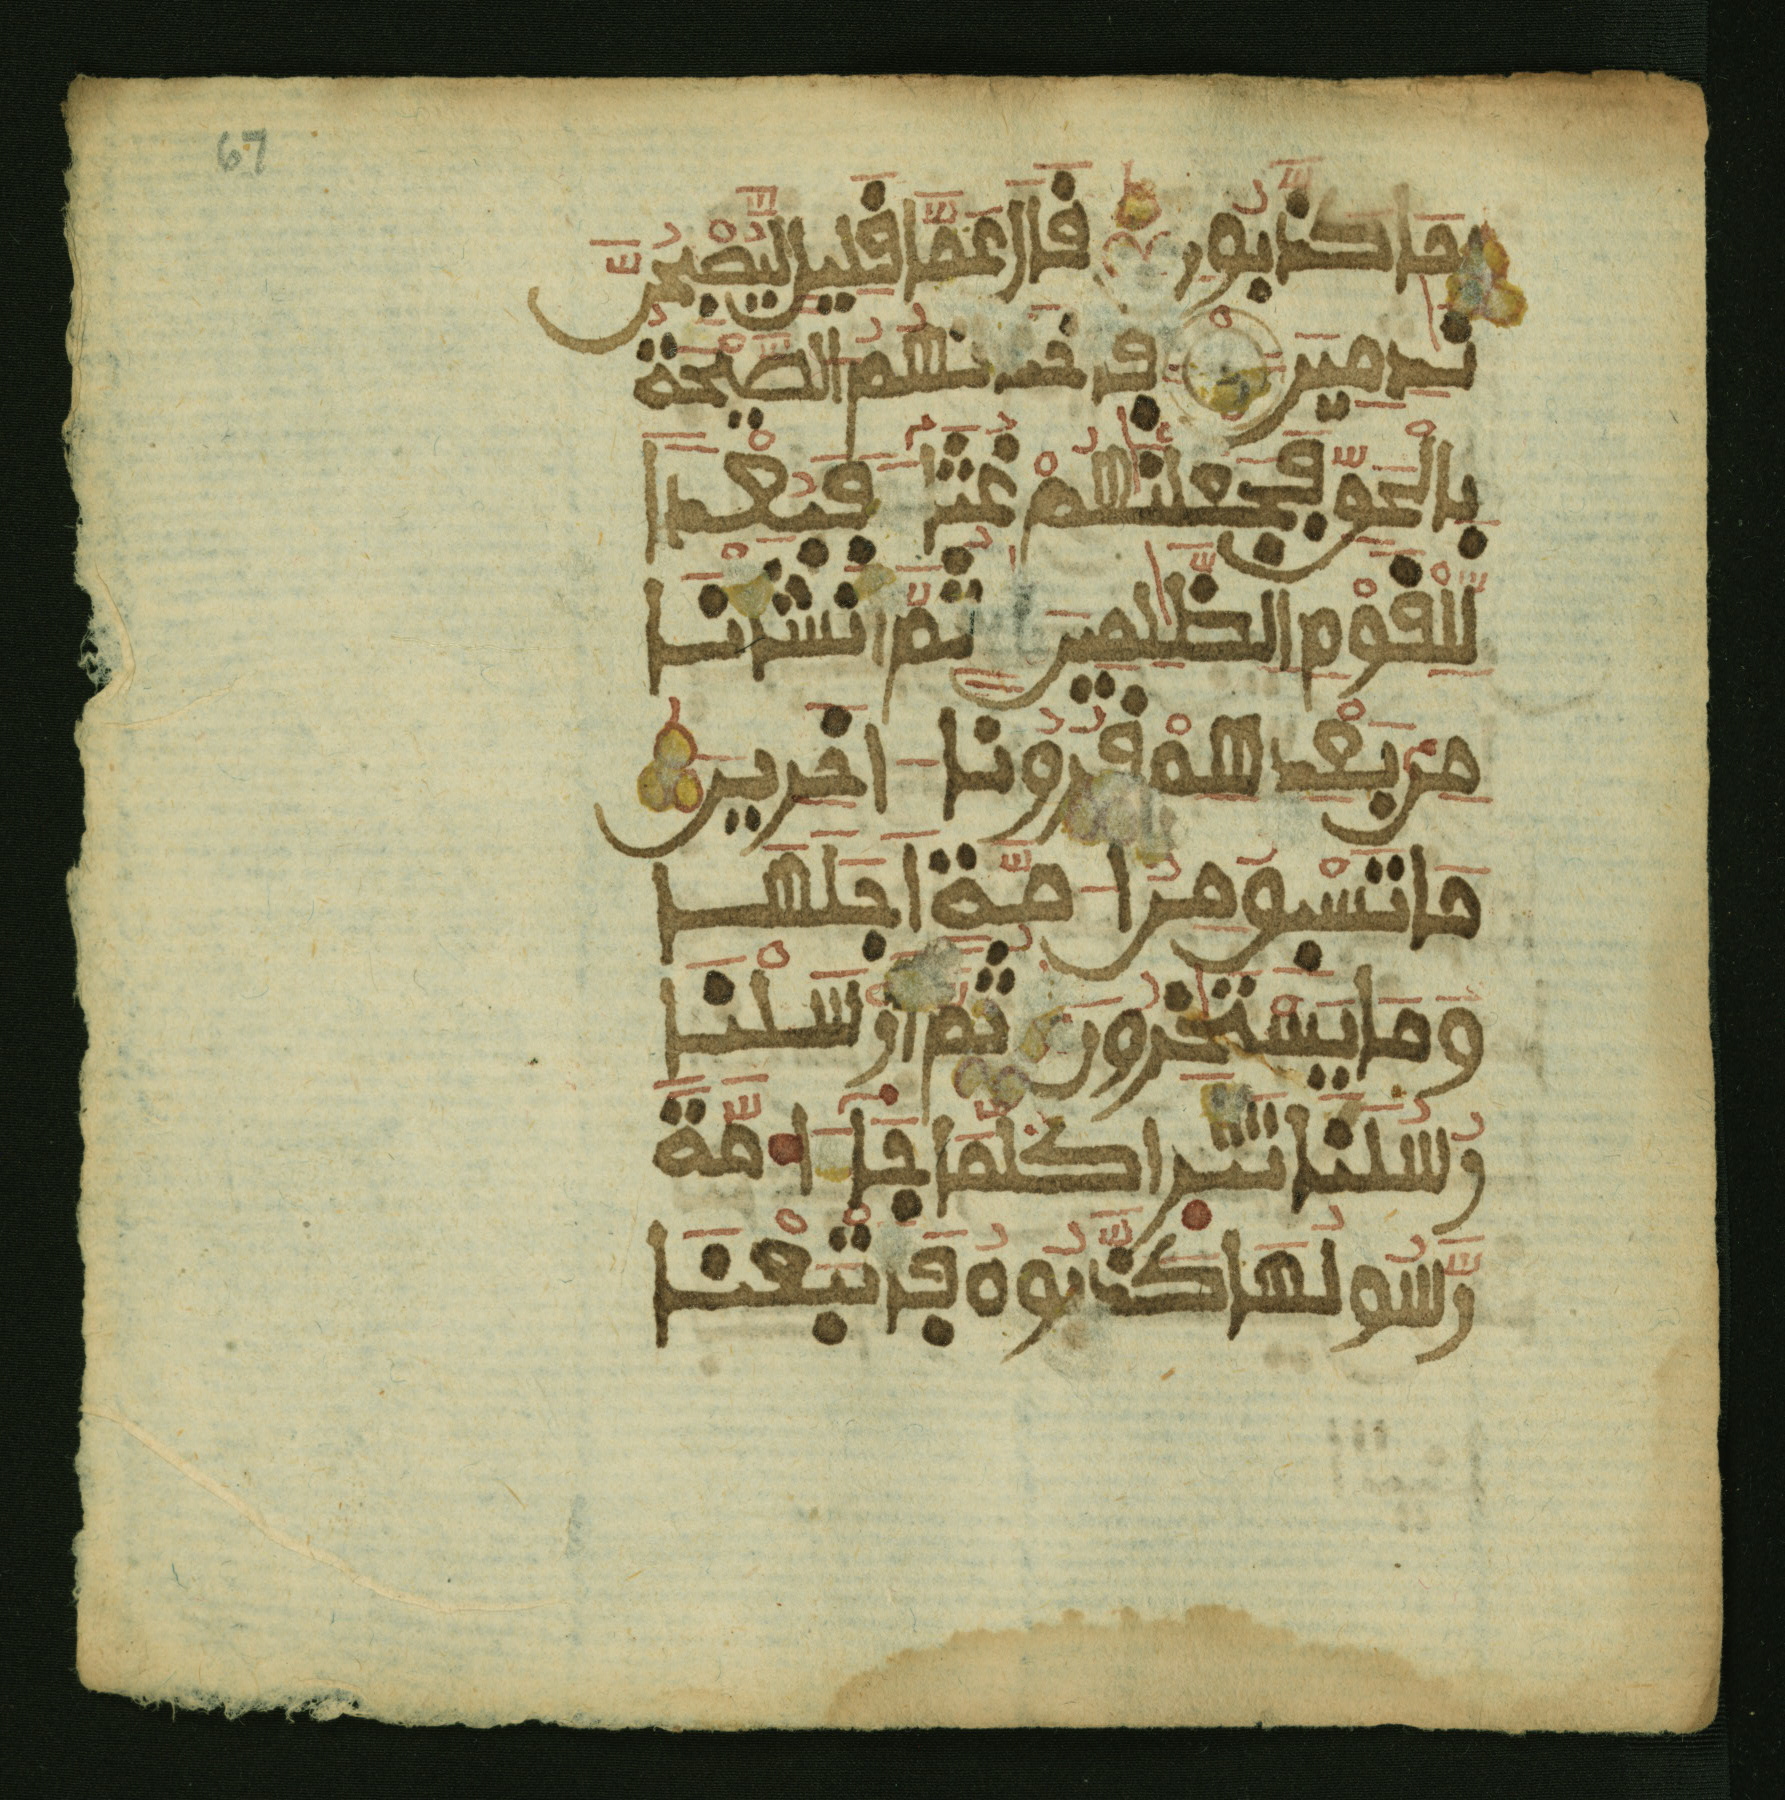 67
بما كذبون قال عما قليل ليصبحن
ندمين فاخذتهم الصيحة
بالحق فجعلنهم غثا فبعدا
للقوم الظلمين ثم انشانا
من بعدهم قرونا اخرين
ما تسبق من امة اجلها
وما يستخرون ثم ارسلنا
رسلنا تترا كلما جا امة
رسولها كذبوه فاتبعنا